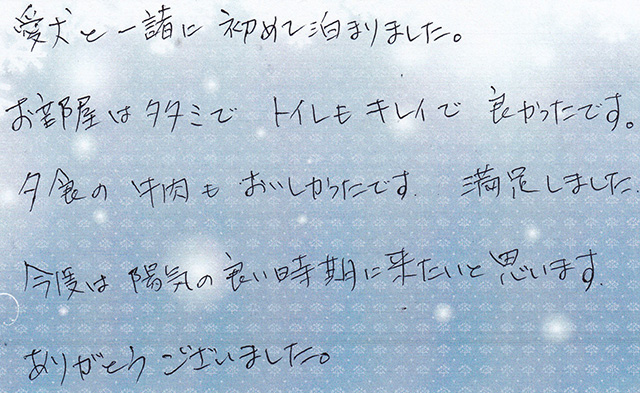 愛犬と一諸に 初めて泊まりました。
お部屋はタタミで トイレもキレイで 良かったです。
夕食の 牛肉も おいしかったです. 満足しました.
今度は 陽気の良い時期に来たいと思います.
ありがとうございました。